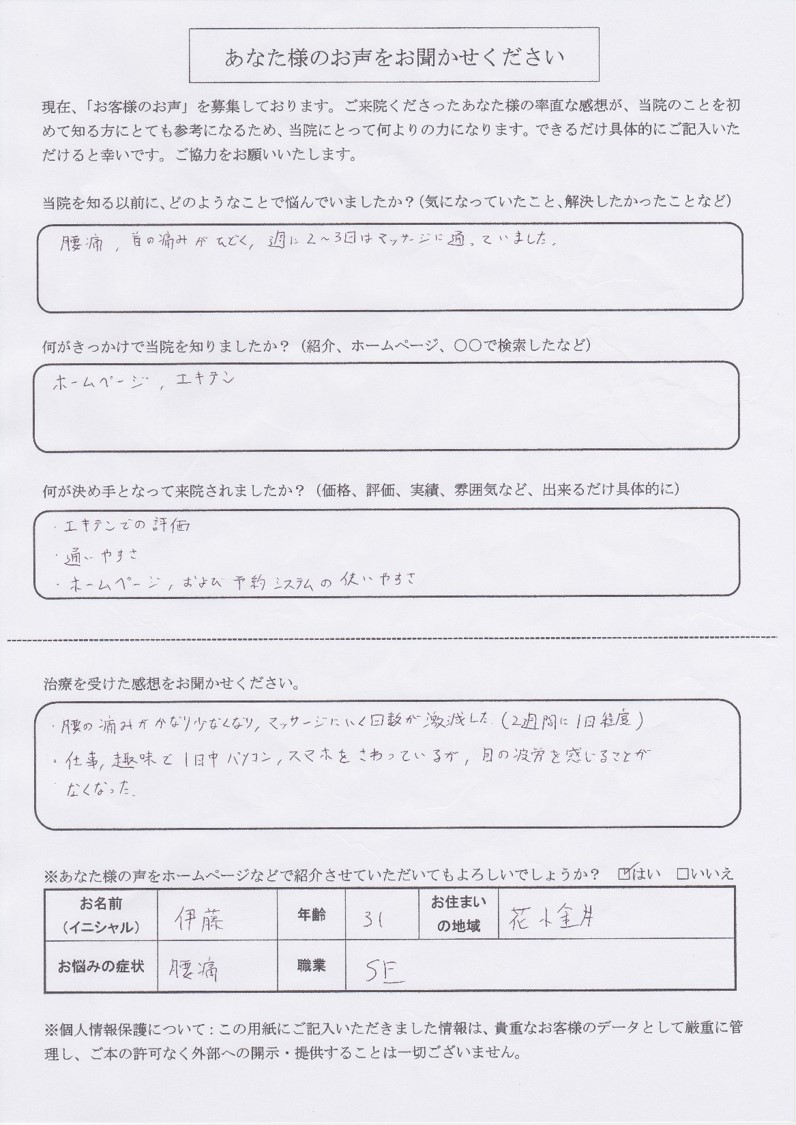 あなた様のお声をお聞かせください
現在、「お客様のお声」を募集しております。ご来院くださったあなた様の率直な感想が、当院のことを初
めて知る方にとても参考になるため、当院にとって何よりの力になります。できるだけ具体的にご記入いた
だけると幸いです。ご協力をお願いいたします。
当院を知る以前に、どのようなことで悩んでいましたか？（気になっていたこと、解決したかったことなど）
腰痛，首の痛みがひどく，週に2～3回はマッサージに通っていました．
何がきっかけで当院を知りましたか？（紹介、ホームページ、〇〇で検索したなど）
ホームページ，エキテン
何が決め手となって来院されましたか？（価格、評価、実績、雰囲気など、出来るだけ具体的に）
・エキテンでの評価
・通いやすさ
・ホームページ，および予約システムの使いやすさ
治療を受けた感想をお聞かせください。
・腰の痛みがかなり少なくなり，マッサージにいく回数が激減した．（2週間に1回程度）
・仕事，趣味で1日中パソコン，スマホをさわっているが，目の疲労を感じることが
なくなった．
※あなた様の声をホームページなどで紹介させていただいてもよろしいでしょうか？ ☑はい □いいえ
お名前（イニシャル） 伊藤 年齢 31 お住まいの地域 花小金井
お悩みの症状 腰痛 職業 SE
※個人情報保護について：この用紙にご記入いただきました情報は、貴重なお客様のデータとして厳重に管
理し、ご本の許可なく外部への開示・提供することは一切ございません。